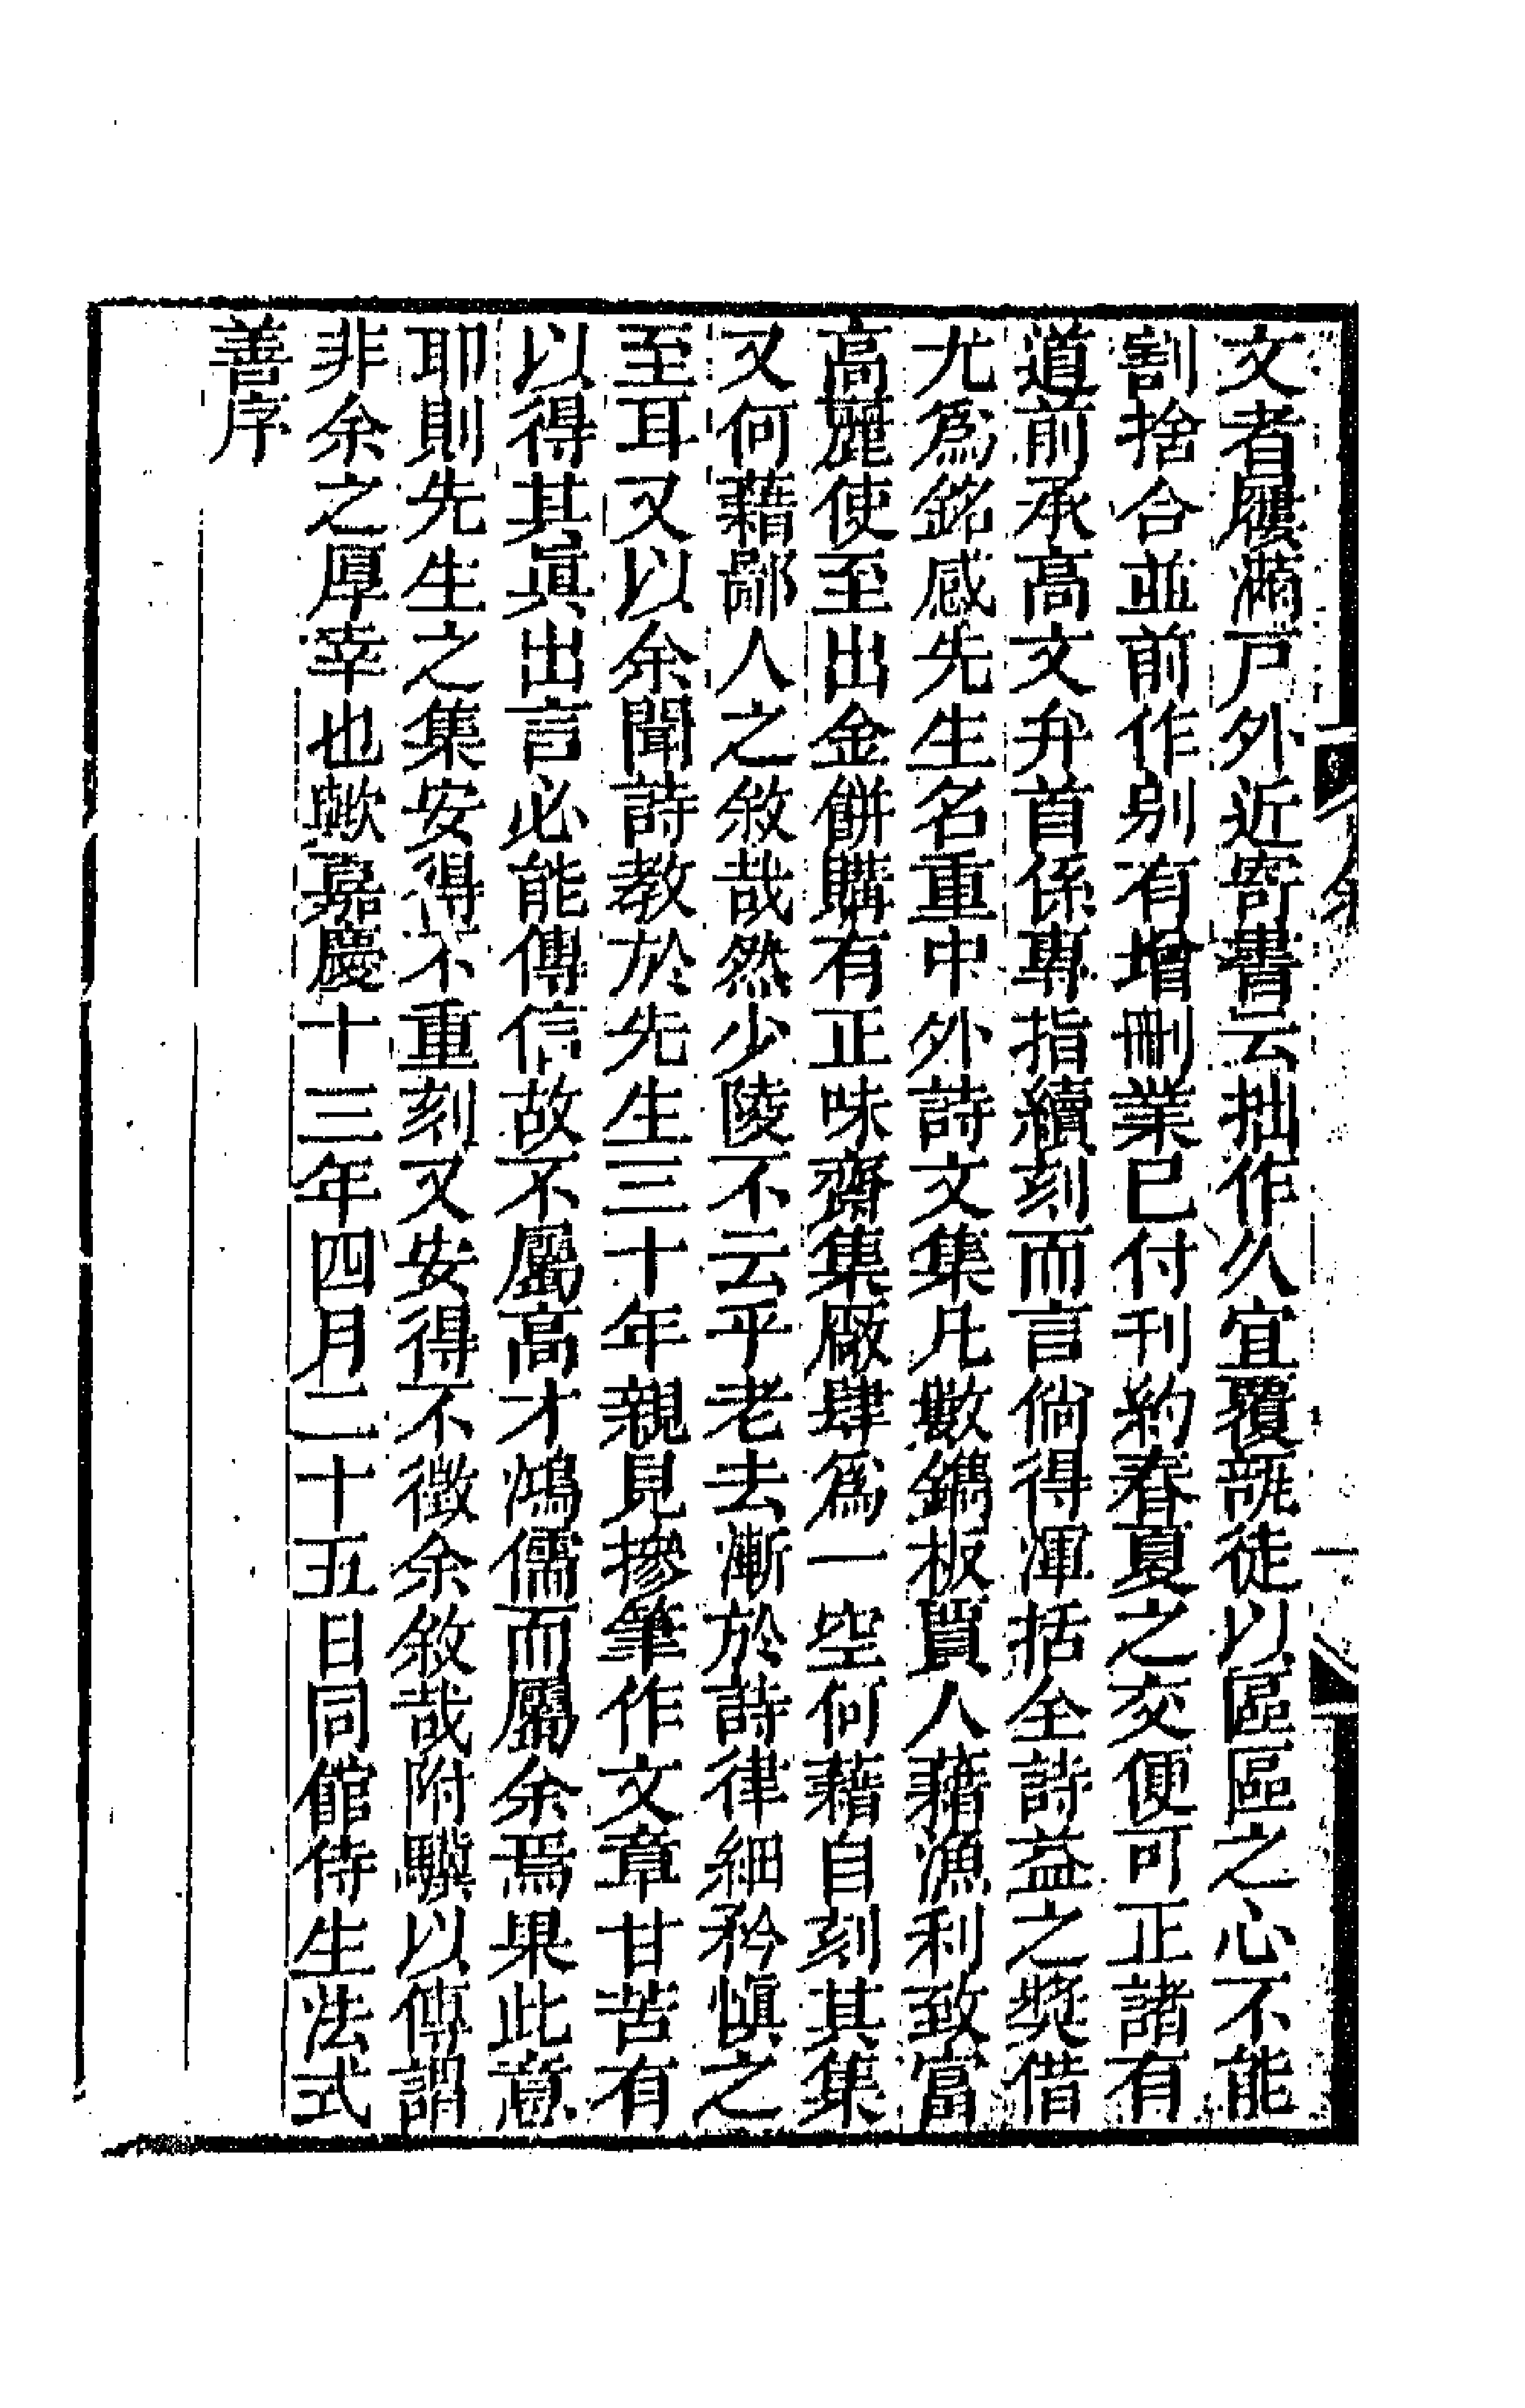 文者屨滿戶外近寄書云拙作久宜覆瓿徒以區區之心不能
割捨合並前作別有增刪業已付刊約春夏之交便可正諸有
道前承高文弁首係專指續刻而言倘得渾括全詩益之獎借
尤爲銘感先生名重中外詩文集凡數鐫板賈人藉漁利致富
高麗使至出金餅購有正味齋集厰肆爲一空何藉自刻其集
又何藉鄙人之敘哉然少陵不云乎老去漸於詩律細矜愼之
至耳又以余聞詩教於先生三十年親見摻筆作文章甘苦有
以得其眞出言必能傳信故不屬高才鴻儒而屬余焉果此意
耶則先生之集安得不重刻又安得不徵余敘哉附驥以傳謂
非余之厚幸也歟嘉慶十三年四月二十五日同館侍生法式
善序